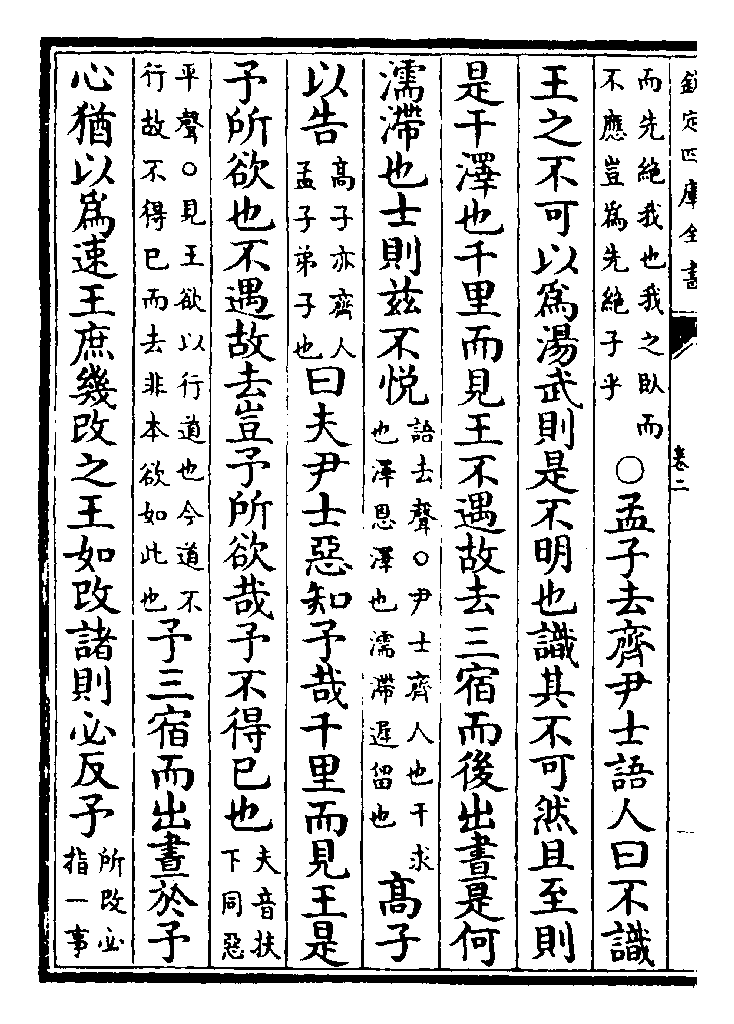 欽定四庫全書 卷二
而先絶我也我之臥而不應豈爲先絶子乎○孟子去齊尹士語人曰不識
王之不可以爲湯武則是不明也識其不可然且至則
是干澤也千里而見王不遇故去三宿而後出晝是何
濡滯也士則兹不悦語去聲○尹士齊人也干求也澤恩澤也濡滯遲留也高子
以告高子亦齊人孟子弟子也曰夫尹士惡知予哉千里而見王是
予所欲也不遇故去豈予所欲哉予不得已也夫音扶下同惡
平聲○見王欲以行道也今道不行故不得已而去非本欲如此也予三宿而出晝於予
心猶以爲速王庶幾改之王如改諸則必反予所改必指一事